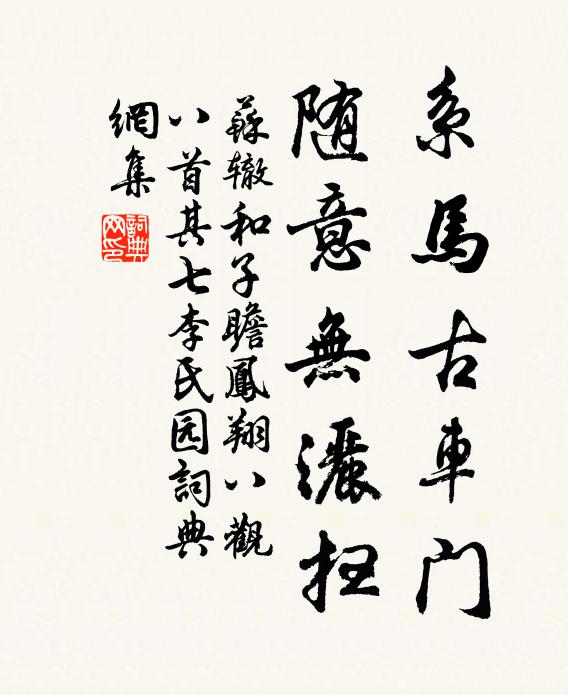 系馬古車门
随意無灑扫
蘇辙和子瞻鳳翔八觀
八首其七李氏园詞典
網集
詞典網印